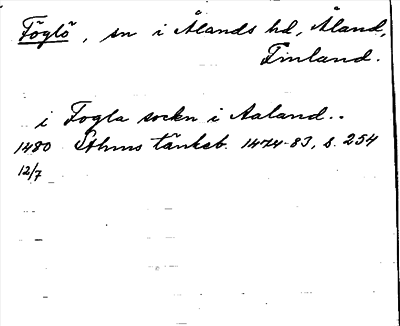 Föglö, sn i Ålands hd, Åland,
Finland.
i Fogla sockn i Aaland..
1480 Sthms tänkeb. 1474-83, s. 254
12/7